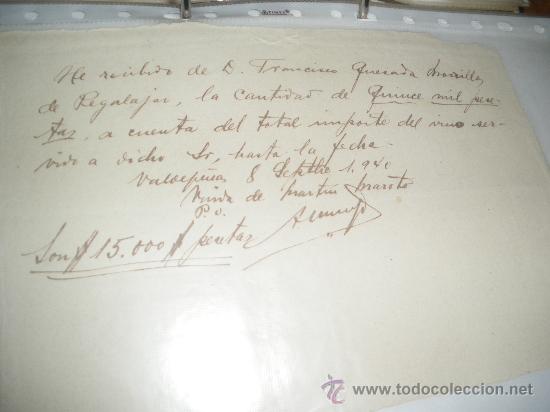 He recibido de D. Francisco Quesada Morillas
de Pegalajar, la cantidad de Quince mil pese-
tas, a cuenta del total importe del vino ser-
vido a dicho Sr, hasta la fecha
Valdepeñas 8 Septbre 1.940
Viuda de Martin Maroto
P.O.
Son $ 15.000 $ pesetas
todocoleccion
www.todocoleccion.net